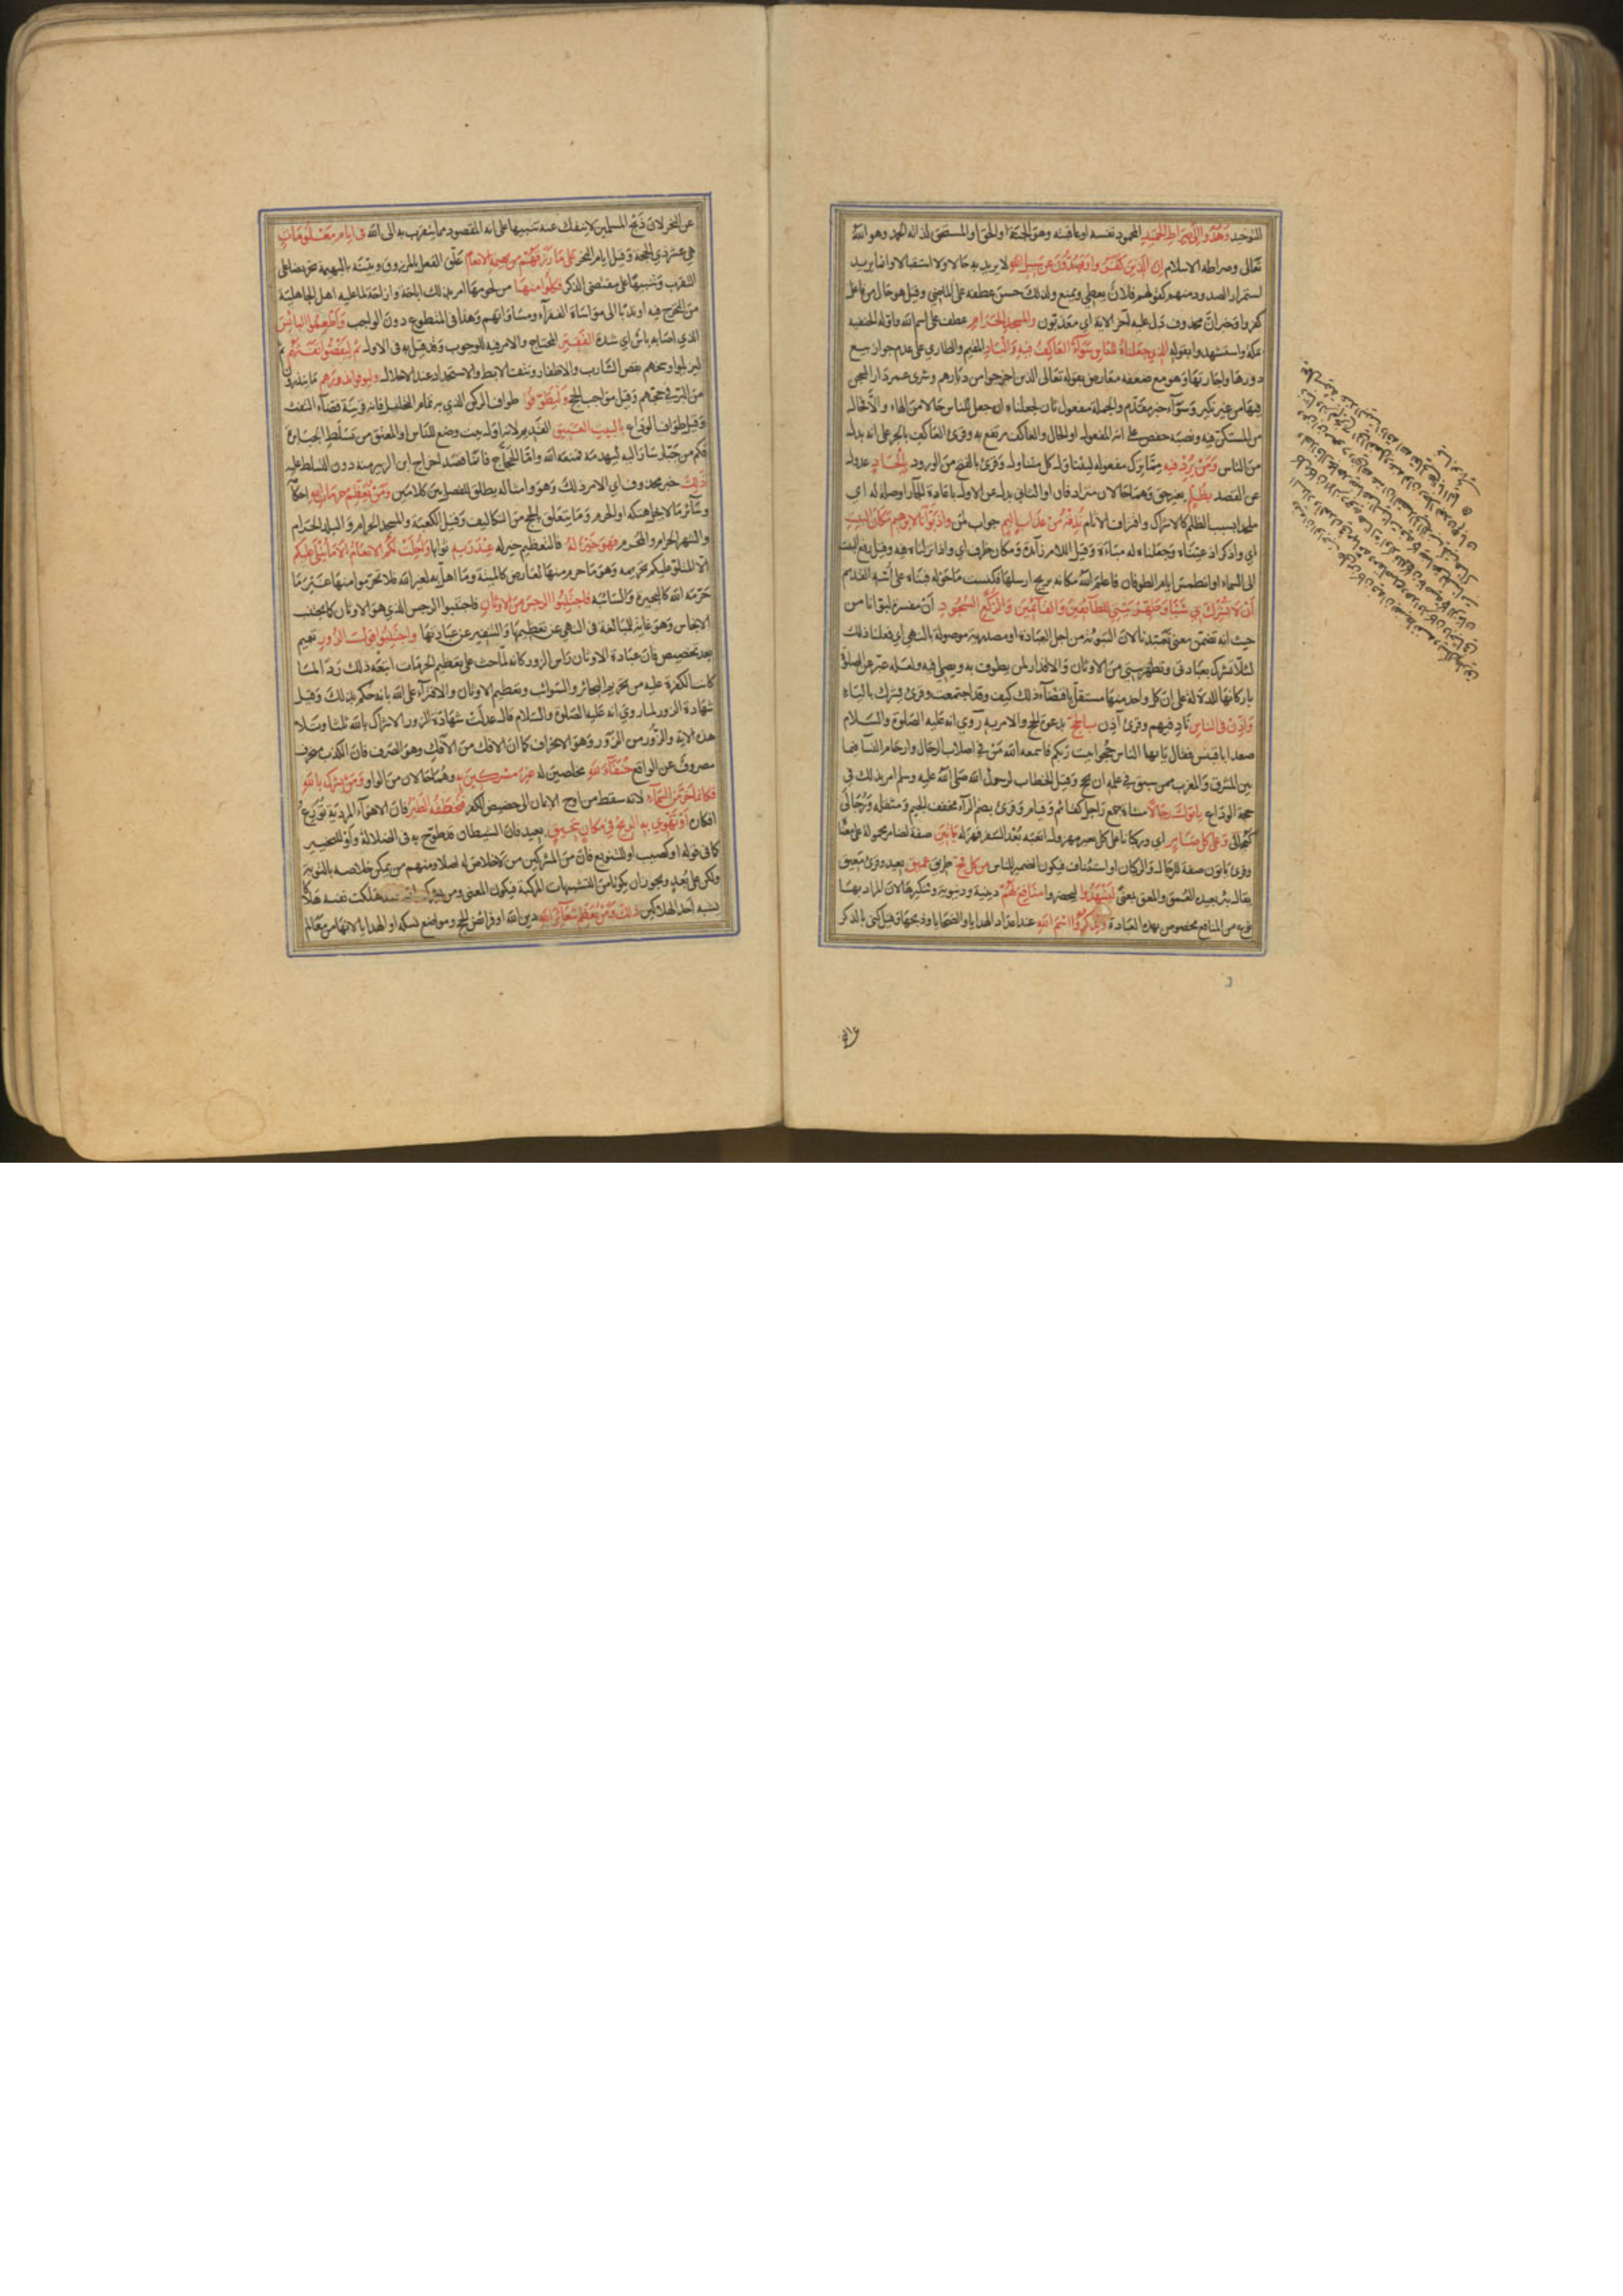 التوحيد وَهُدُوا إِلَى صِرَاطِ الحَمِيدِ المحمود نفسه او عاقبته وهو الجنة او الحق او المستحق لذاته الحمد وهو الله
تعالى وصراطه الاسلام إن الذين كفروا ويصدون عن سبيل الله لا يريد به حالا ولا استقبالا وانما يريد
استمرار الصد ودمنهم كقولهم فلان يعطي ويمنع ولذلك حسن عطفه على الماضي وقيل هو حال من فاعل
كفروا وخبر ان محذوف دل عليه آخر الاية اي معذبون والمسجد الحرام عطف على اسم الله واوله الحنفية
بمكة واستشهدوا بقوله الذي جعلناه للناس سواء العاكف فيه والباد المقيم والطاري على عدم جواز بيع
دورها واجارتها وهو مع ضعفه معارض بقوله تعالى الذين اخرجوا من ديارهم وشرى عمر دار السجن
فيها من غير نكير وسواء خبر مقدم والجملة مفعول ثان لجعلناه ان جعل للناس حالا من الهاء والا فحال
من المستكن فيه ونصبه حفص على انه المفعول او الحال والعاكف مرتفع به وقرئ العاكف بالجر على انه بدل
من الناس ومن يرد فيه مما ترك مفعوله ليتناول كل متناول وقرئ بالفتح من الورود بإلحاد عدول
عن القصد بظلم بغير حق وهما حالان مترادفان او الثاني بدل عن الاول باعادة الجار او صلة له اي
ملحدا بسبب الظلم كالاشراك واقتراف الاثام نذقه من عذاب اليم جواب لمن واذ بوأنا لابرهيم مكان البيت
اي واذكر اذ عيناه وجعلناه له مباءة وقيل اللام زائدة ومكان ظرف اي واذ انزلناه فيه وقيل رفع البيت
الى السماء او انطمس ايام الطوفان فاعلم الله مكانه بريح ارسلها فكنست ما حوله فبناه على أسه القديم
أن لا تشرك بي شيئا وطهر بيتي للطائفين والقائمين والركع السجود أن مفسرة لبوأنا من
حيث انه تضمن معنى تعبدنا لان التبوئة من اجل العبادة او مصدرية موصولة بالنهي اي فعلنا ذلك
لئلا تشرك بعبادتي وتطهر بيتي من الاوثان والاقذار لمن يطوف به ويصلي فيه ولعله عبر عن الصلوة
باركانها للدلالة على ان كل واحد منها مستقل باقتضاء ذلك كيف وقد اجتمعت وقرئ يشرك بالياء
وأذن في الناس ناد فيهم وقرئ آذن بالحج بدعوة الحج والامر به روي انه عليه الصلوة والسلام
صعد ابا قبيس فقال يا ايها الناس حجوا بيت ربكم فاسمعه الله من في اصلاب الرجال وارحام النسا فيما
بين المشرق والمغرب ممن سبق في علمه ان يحج وقيل الخطاب لرسول الله صلى الله عليه وسلم امر بذلك في
حجة الوداع يأتوك رجالا مشاة جمع راجل كقائم وقيام وقرئ بضم الراء مخفف الجيم ومثقله ورجالى
كعجالى وعلى كل ضامر اي وركبانا على كل بعير مهزول اتعبه بعد السفر فهزله يأتين صفة لضامر محمولة على معناه
وقرئ يأتون صفة للرجال والركبان او استئناف فيكون الضمير للناس من كل فج طريق عميق بعيد وقرئ معيق
يقال بئر بعيدة العمق والمعق بمعنى ليشهدوا ليحضروا منافع لهم دينية ودنيوية وتنكيرها لان المراد بها
نوع من المنافع مخصوص بهذه العبادة ويذكروا اسم الله عند اعداد الهدايا والضحايا وذبحها وقيل كنى بالذكر
عن النحر لان ذبح المسلمين لا ينفك عنه تنبيها على انه المقصود مما يتقرب به الى الله في ايام معلومات
هي عشر ذي الحجة وقيل ايام النحر على ما رزقهم من بهيمة الانعام علق الفعل بالمرزوق وبينه بالبهيمة تحريضا على
التقرب وتنبيها على مقتضى الذكر فكلوا منها من لحومها امر بذلك اباحة وازاحة لما عليه اهل الجاهلية
من التحرج فيه او ندبا الى مواساة الفقراء ومساواتهم وهذا في المتطوع دون الواجب وأطعموا البائس
الذي اصابه بؤس اي شدة الفقير المحتاج والامر فيه للوجوب وقد قيل به في الاول ثم ليقضوا تفثهم ثم
ليزيلوا وسخهم بقص الشارب والاظفار ونتف الابط والاستحداد عند الاحلال وليوفوا نذورهم ما ينذرون
من البر في حجهم وقيل مواجب الحج وليطوفوا طواف الركن الذي به تمام التحليل فانه قرينة قضاء التفث
وقيل طواف الوداع بالبيت العتيق القديم لانه اول بيت وضع للناس او المعتق من تسلط الجبابرة
فكم من جبار سار اليه ليهدمه فمنعه الله واما الحجاج فانما قصد اخراج ابن الزبير منه دون التسلط عليه
ذلك خبر محذوف اي الامر ذلك وهو وامثاله يطلق للفصل بين كلامين ومن يعظم حرمات الله احكامه
وسائر ما لا يحل هتكه او الحرم وما يتعلق بالحج من التكاليف وقيل الكعبة والمسجد الحرام والبلد الحرام
والشهر الحرام والمحرم فهو خير له فالتعظيم خير له عند ربه ثوابا وأحلت لكم الانعام الا ما يتلى عليكم
الا المتلو عليكم تحريمه وهو ما حرم منها لعارض كالميتة وما اهل به لغير الله فلا تحرموا منها غير ما
حرمه الله كالبحيرة والسائبة فاجتنبوا الرجس من الاوثان فاجتنبوا الرجس الذي هو الاوثان كما يجتنب
الانجاس وهو غاية المبالغة في النهي عن تعظيمها والتنفير عن عبادتها واجتنبوا قول الزور تعميم
بعد تخصيص فان عبادة الاوثان راس الزور كانه لما حث على تعظيم الحرمات اتبعه ذلك ردا لما
كانت الكفرة عليه من تحريم البحائر والسوائب وتعظيم الاوثان والافتراء على الله بانه حكم بذلك وقيل
شهادة الزور لما روي انه عليه الصلوة والسلام قال عدلت شهادة الزور الاشراك بالله ثلثا وتلا
هذه الاية والزور من الزور وهو الانحراف كما ان الافك من الأفك وهو الصرف فان الكذب منحرف
مصروف عن الواقع حنفاء لله مخلصين له غير مشركين به وهما حالان من الواو ومن يشرك بالله
فكأنما خر من السماء لانه سقط من اوج الايمان الى حضيض الكفر فتخطفه الطير فان الاهواء المردية توزع
افكاره او تهوي به الريح في مكان سحيق بعيد فان الشيطان قد طوح به في الضلالة وأو للتخيير
كما في قوله او كصيب او للتنويع فان من المشركين من لا خلاص له اصلا ومنهم من يمكن خلاصه بالتوبة
ولكن على بعد ويجوز ان يكونا من التشبيهات المركبة فيكون المعنى ومن يشرك هلكت نفسه هلاكا
يشبه احد الهلاكين ذلك ومن يعظم شعائر الله دين الله او فرائض الحج ومواضع نسكه او الهدايا لانها من معالم